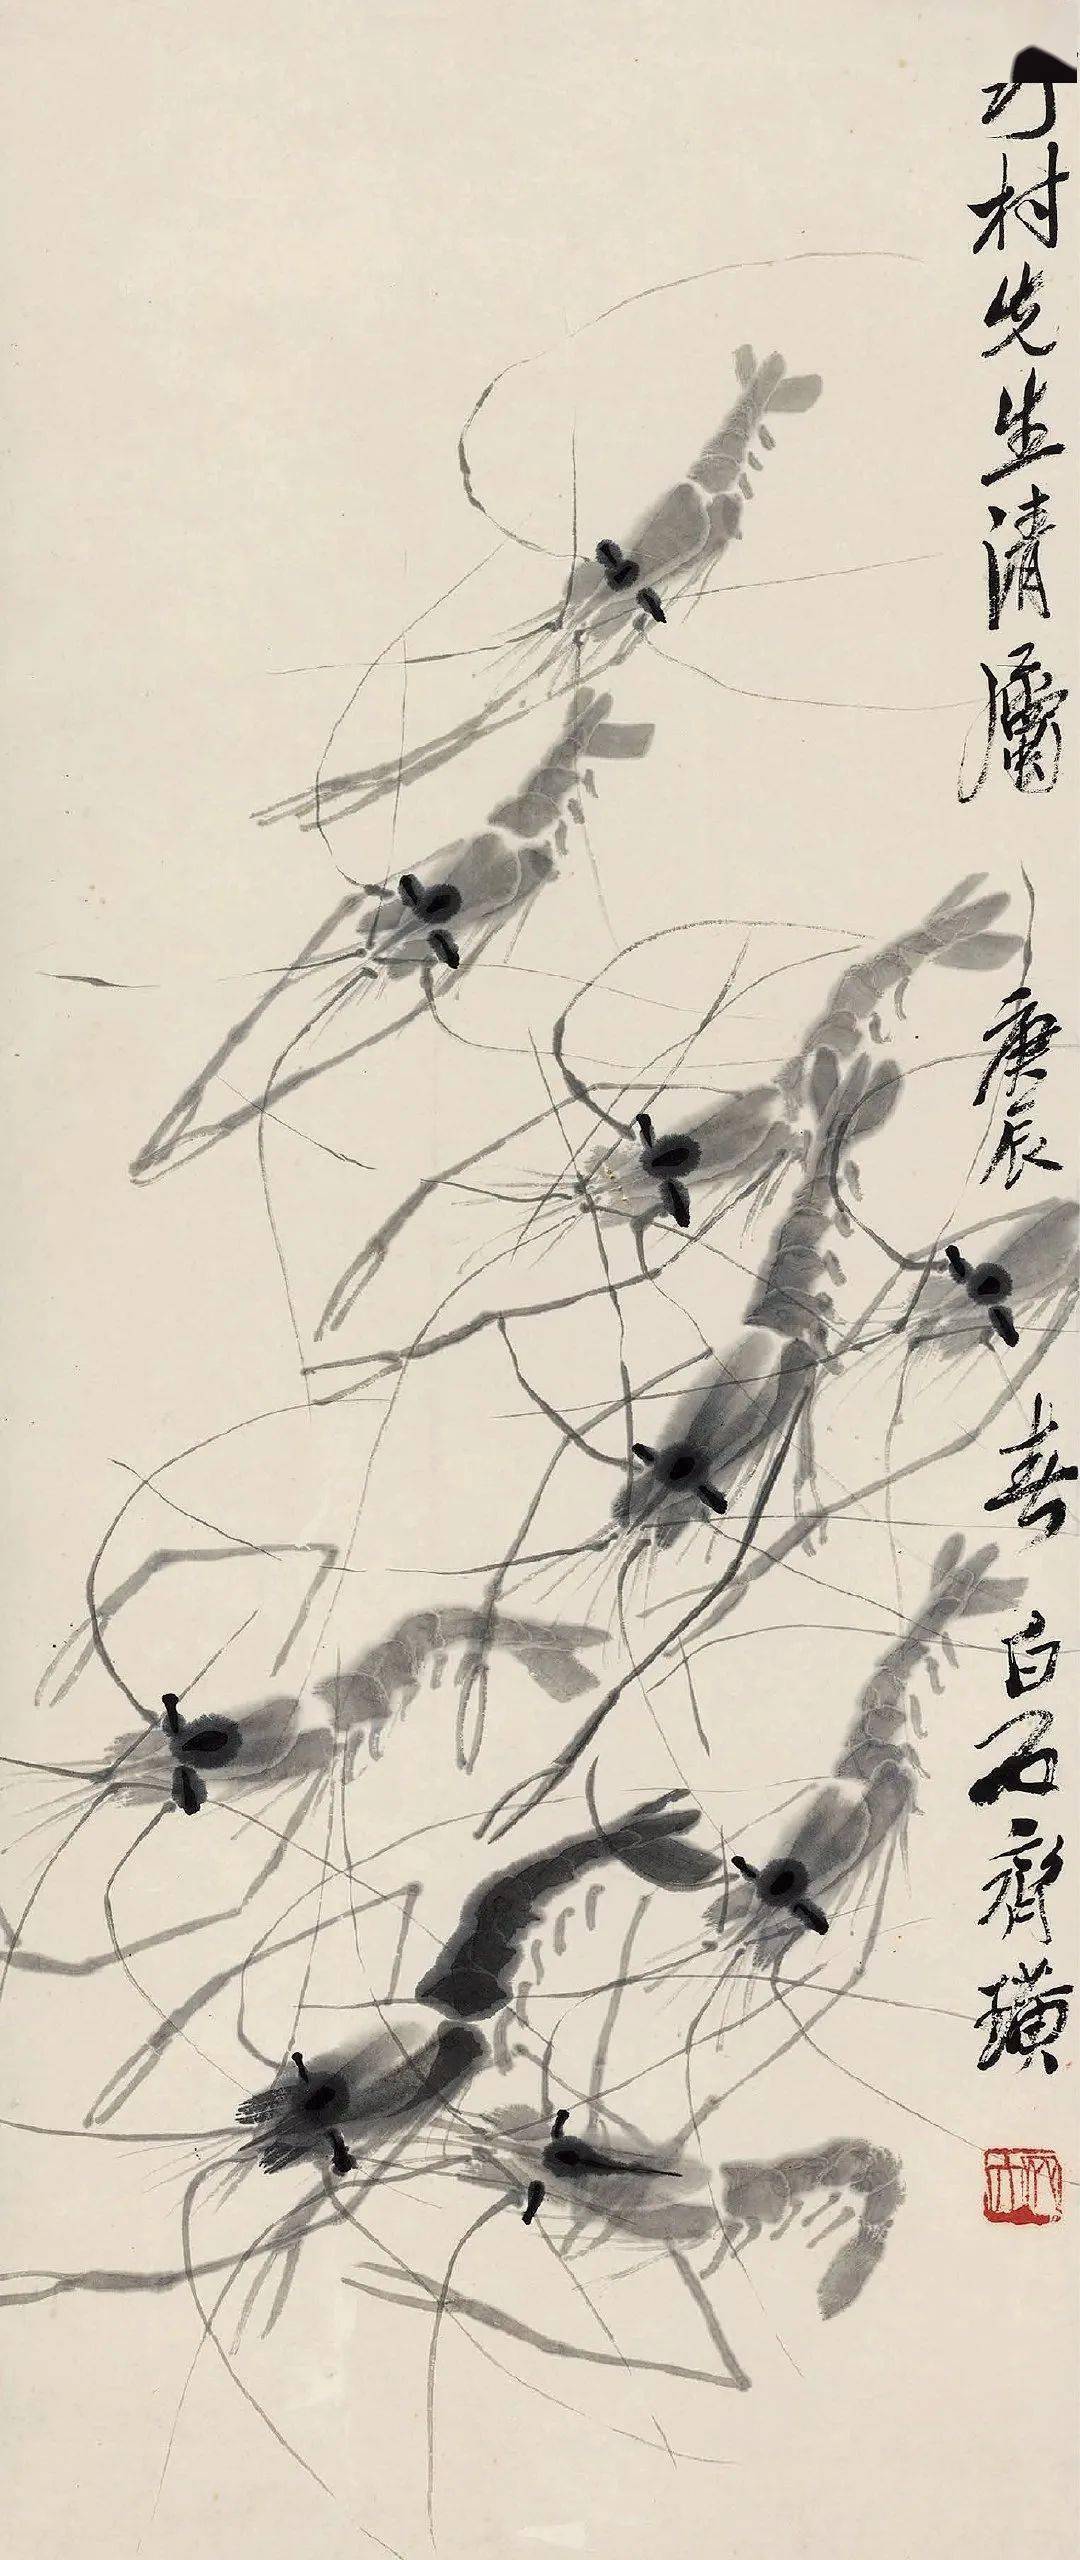 村先生清屬 庚辰 春 白石齊璜